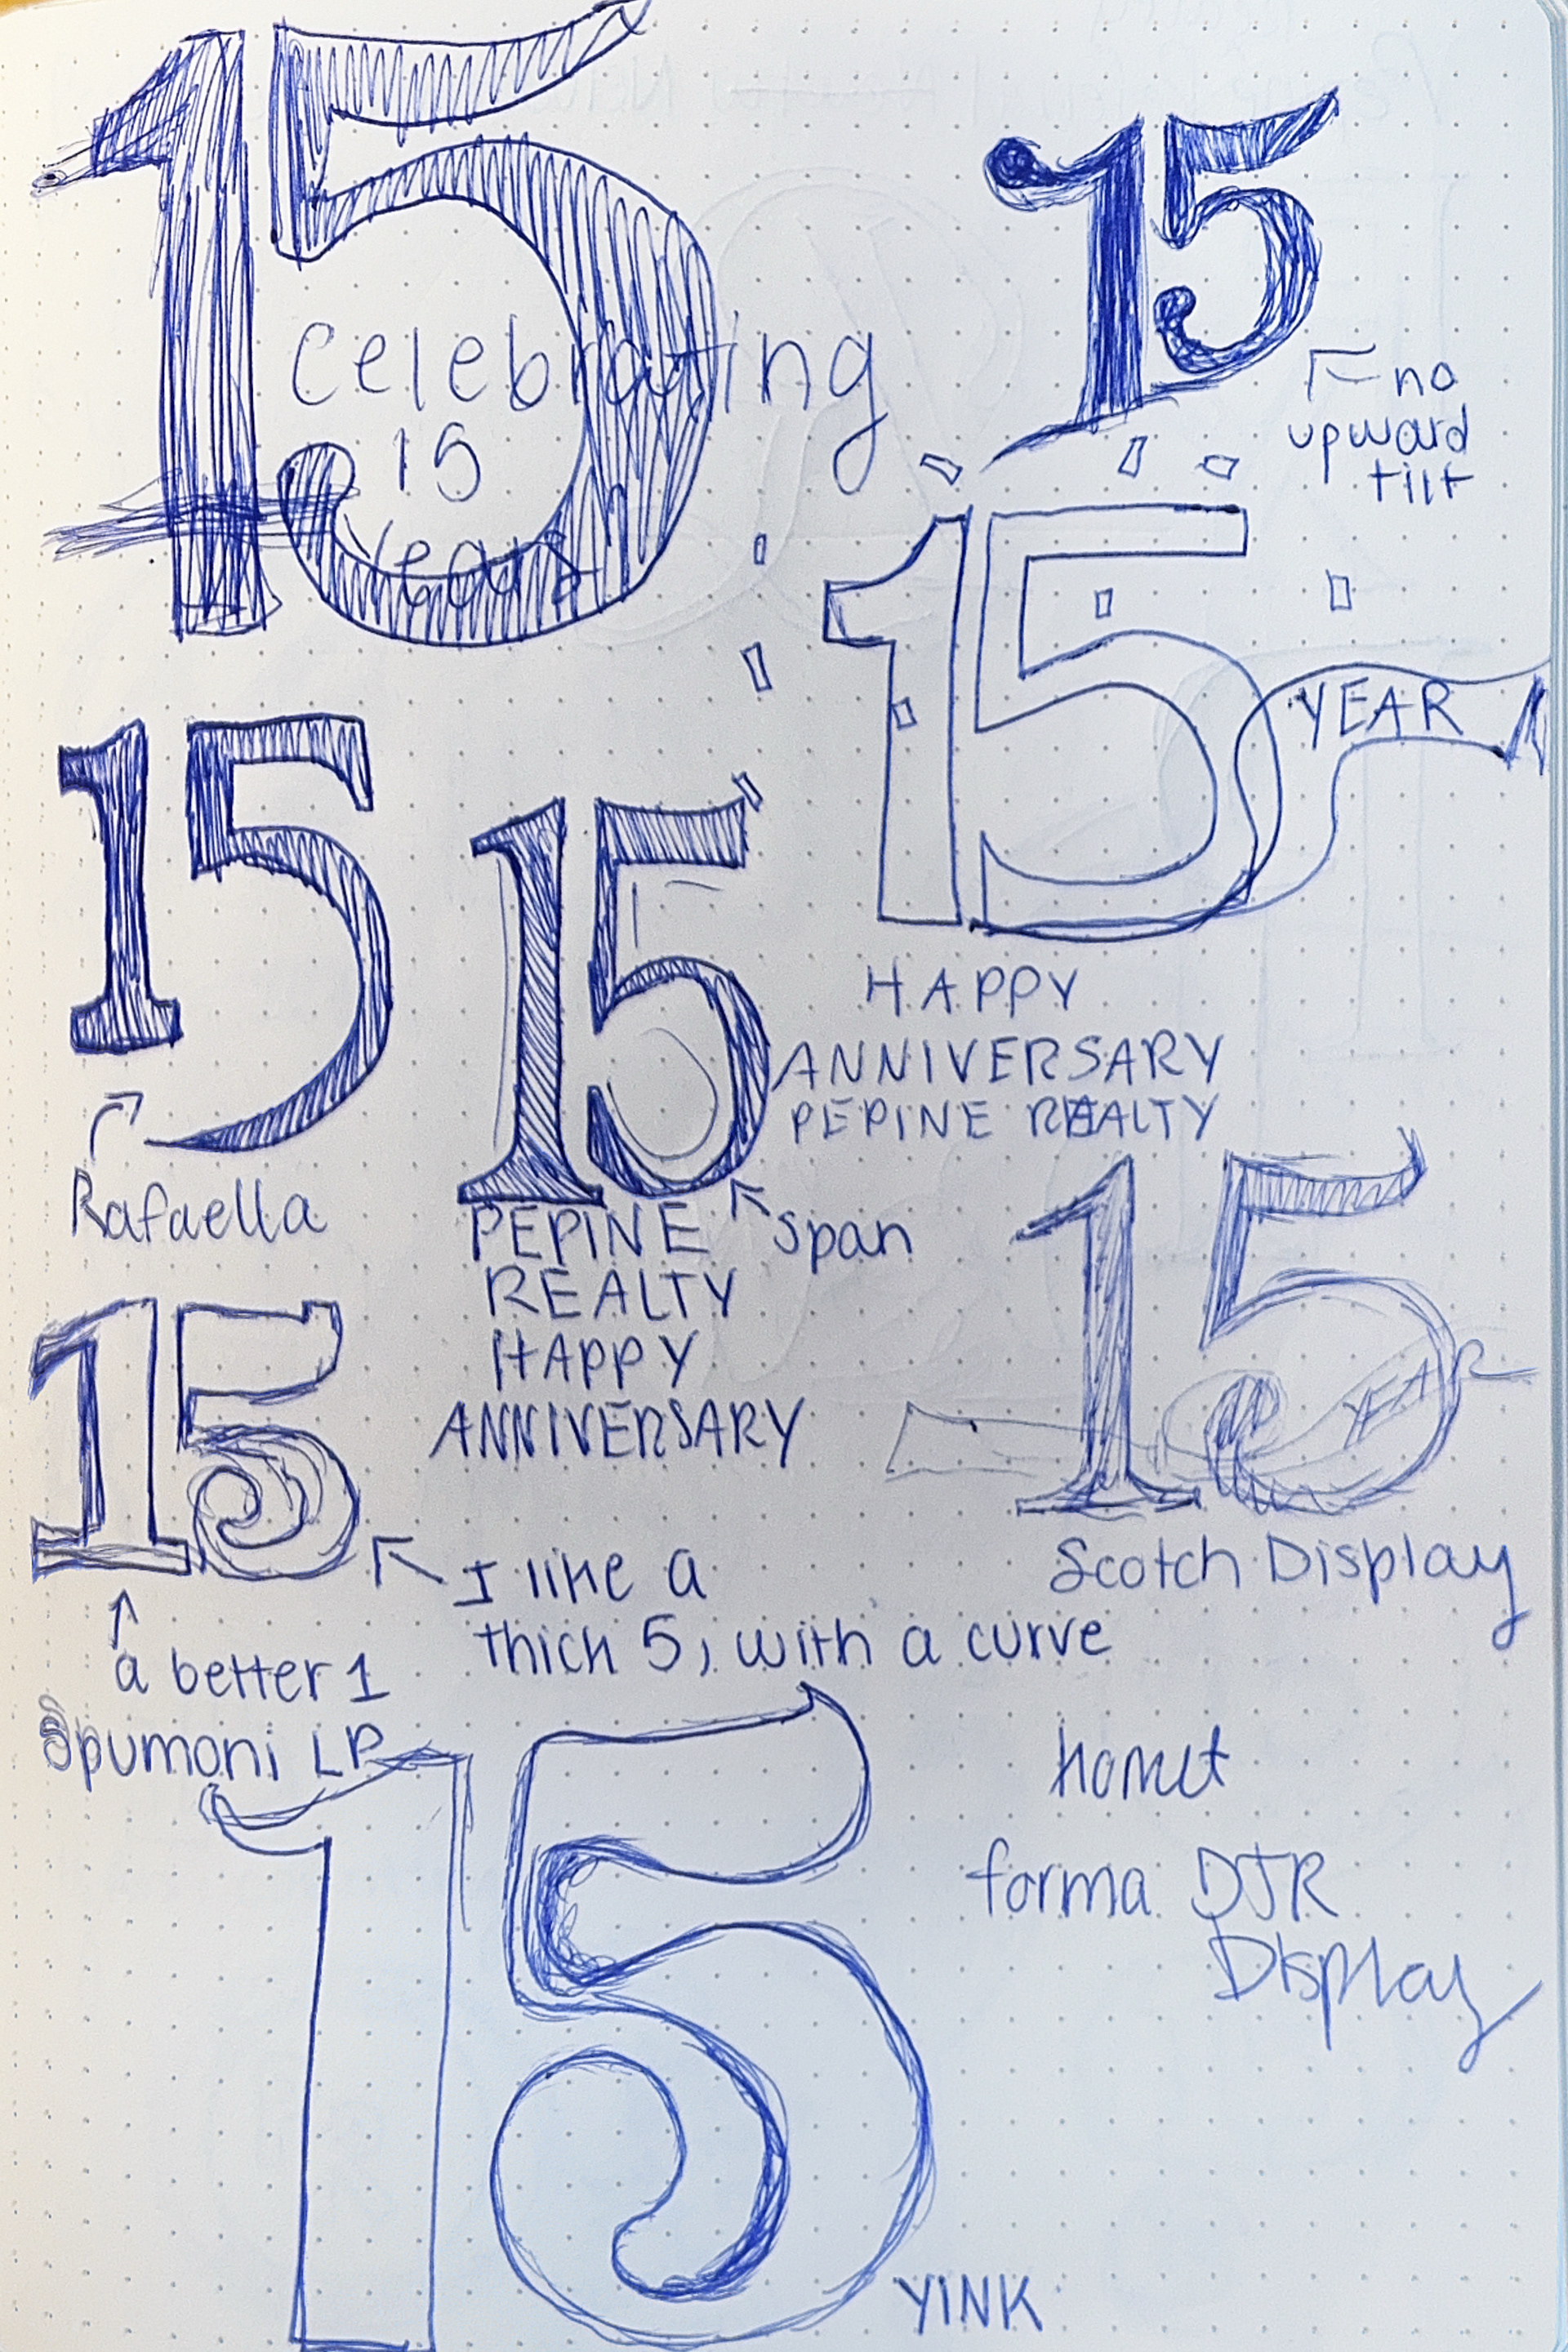 15
Celebrating
15
Years
15
no
upward
tilt
15
YEAR
HAPPY
ANNIVERSARY
PEPINE REALTY
15
Rafaella
15
span
PEPINE
REALTY
HAPPY
ANNIVERSARY
15
YEAR
Scotch Display
15
I like a
thick 5, with a curve
a better 1
Spumoni LP
15
forma DJR
Display
YINK